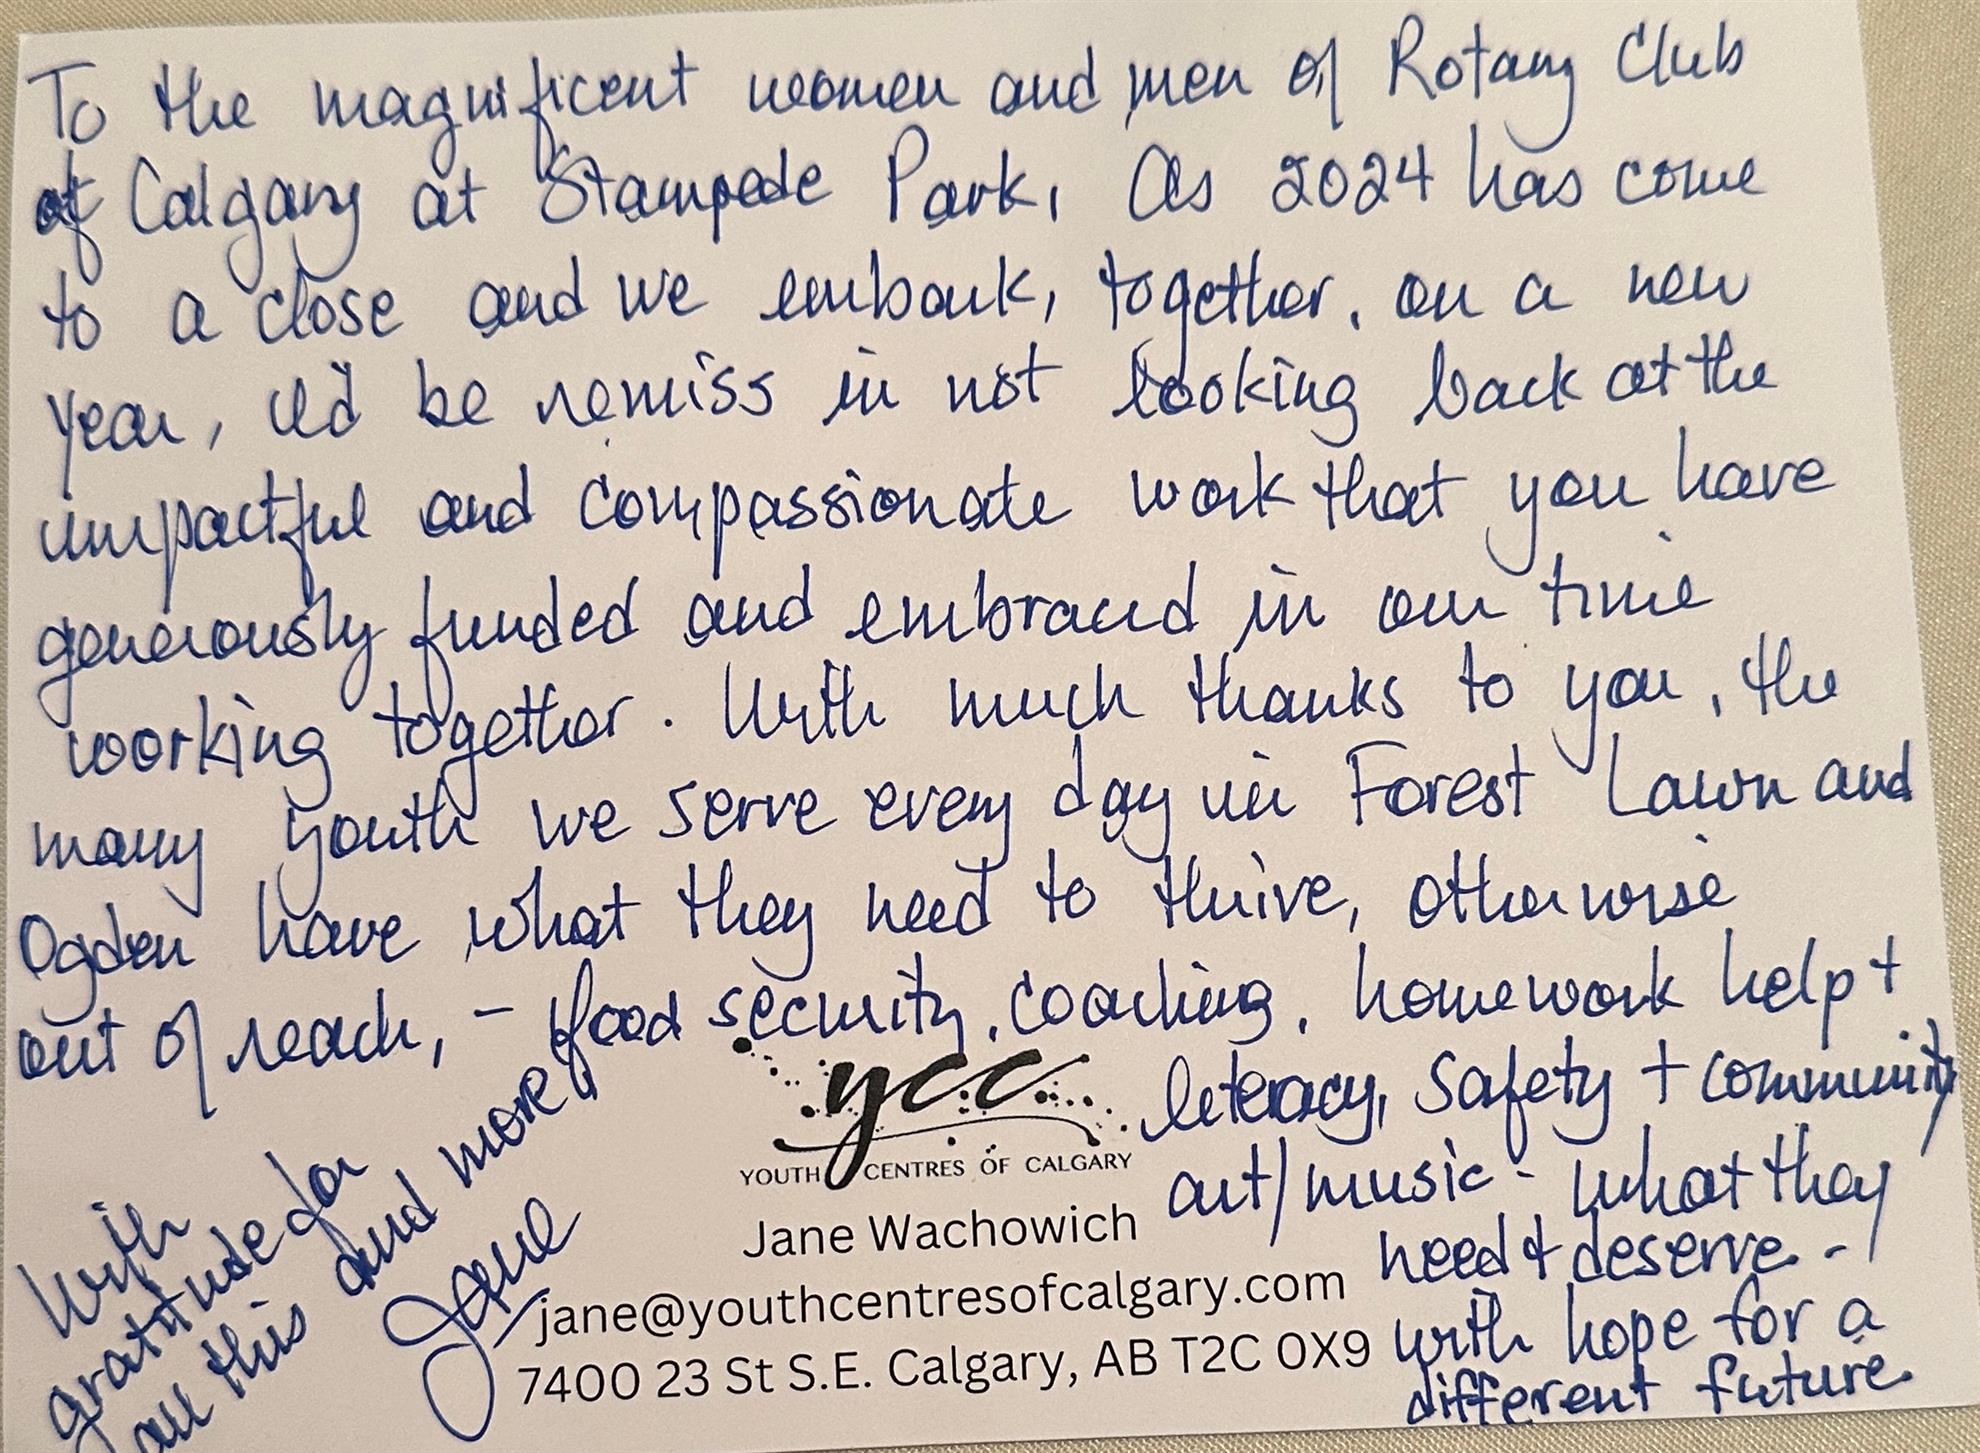 To the magnificent women and men of Rotary Club
of Calgary at Stampede Park, As 2024 has come
to a close and we embark, together, on a new
year, I'd be remiss in not looking back at the
impactful and compassionate work that you have
generously funded and embraced in our time
working together. With much thanks to you, the
many youth we serve every day in Forest Lawn and
Ogden have what they need to thrive, otherwise
out of reach, - food security, coaching, homework help +
literacy, safety + community
art/music - what they
need + deserve -
with hope for a
different future
With
gratitude for
all this and more!
Jane
ycc
YOUTH CENTRES OF CALGARY
Jane Wachowich
jane@youthcentresofcalgary.com
7400 23 St S.E. Calgary, AB T2C 0X9